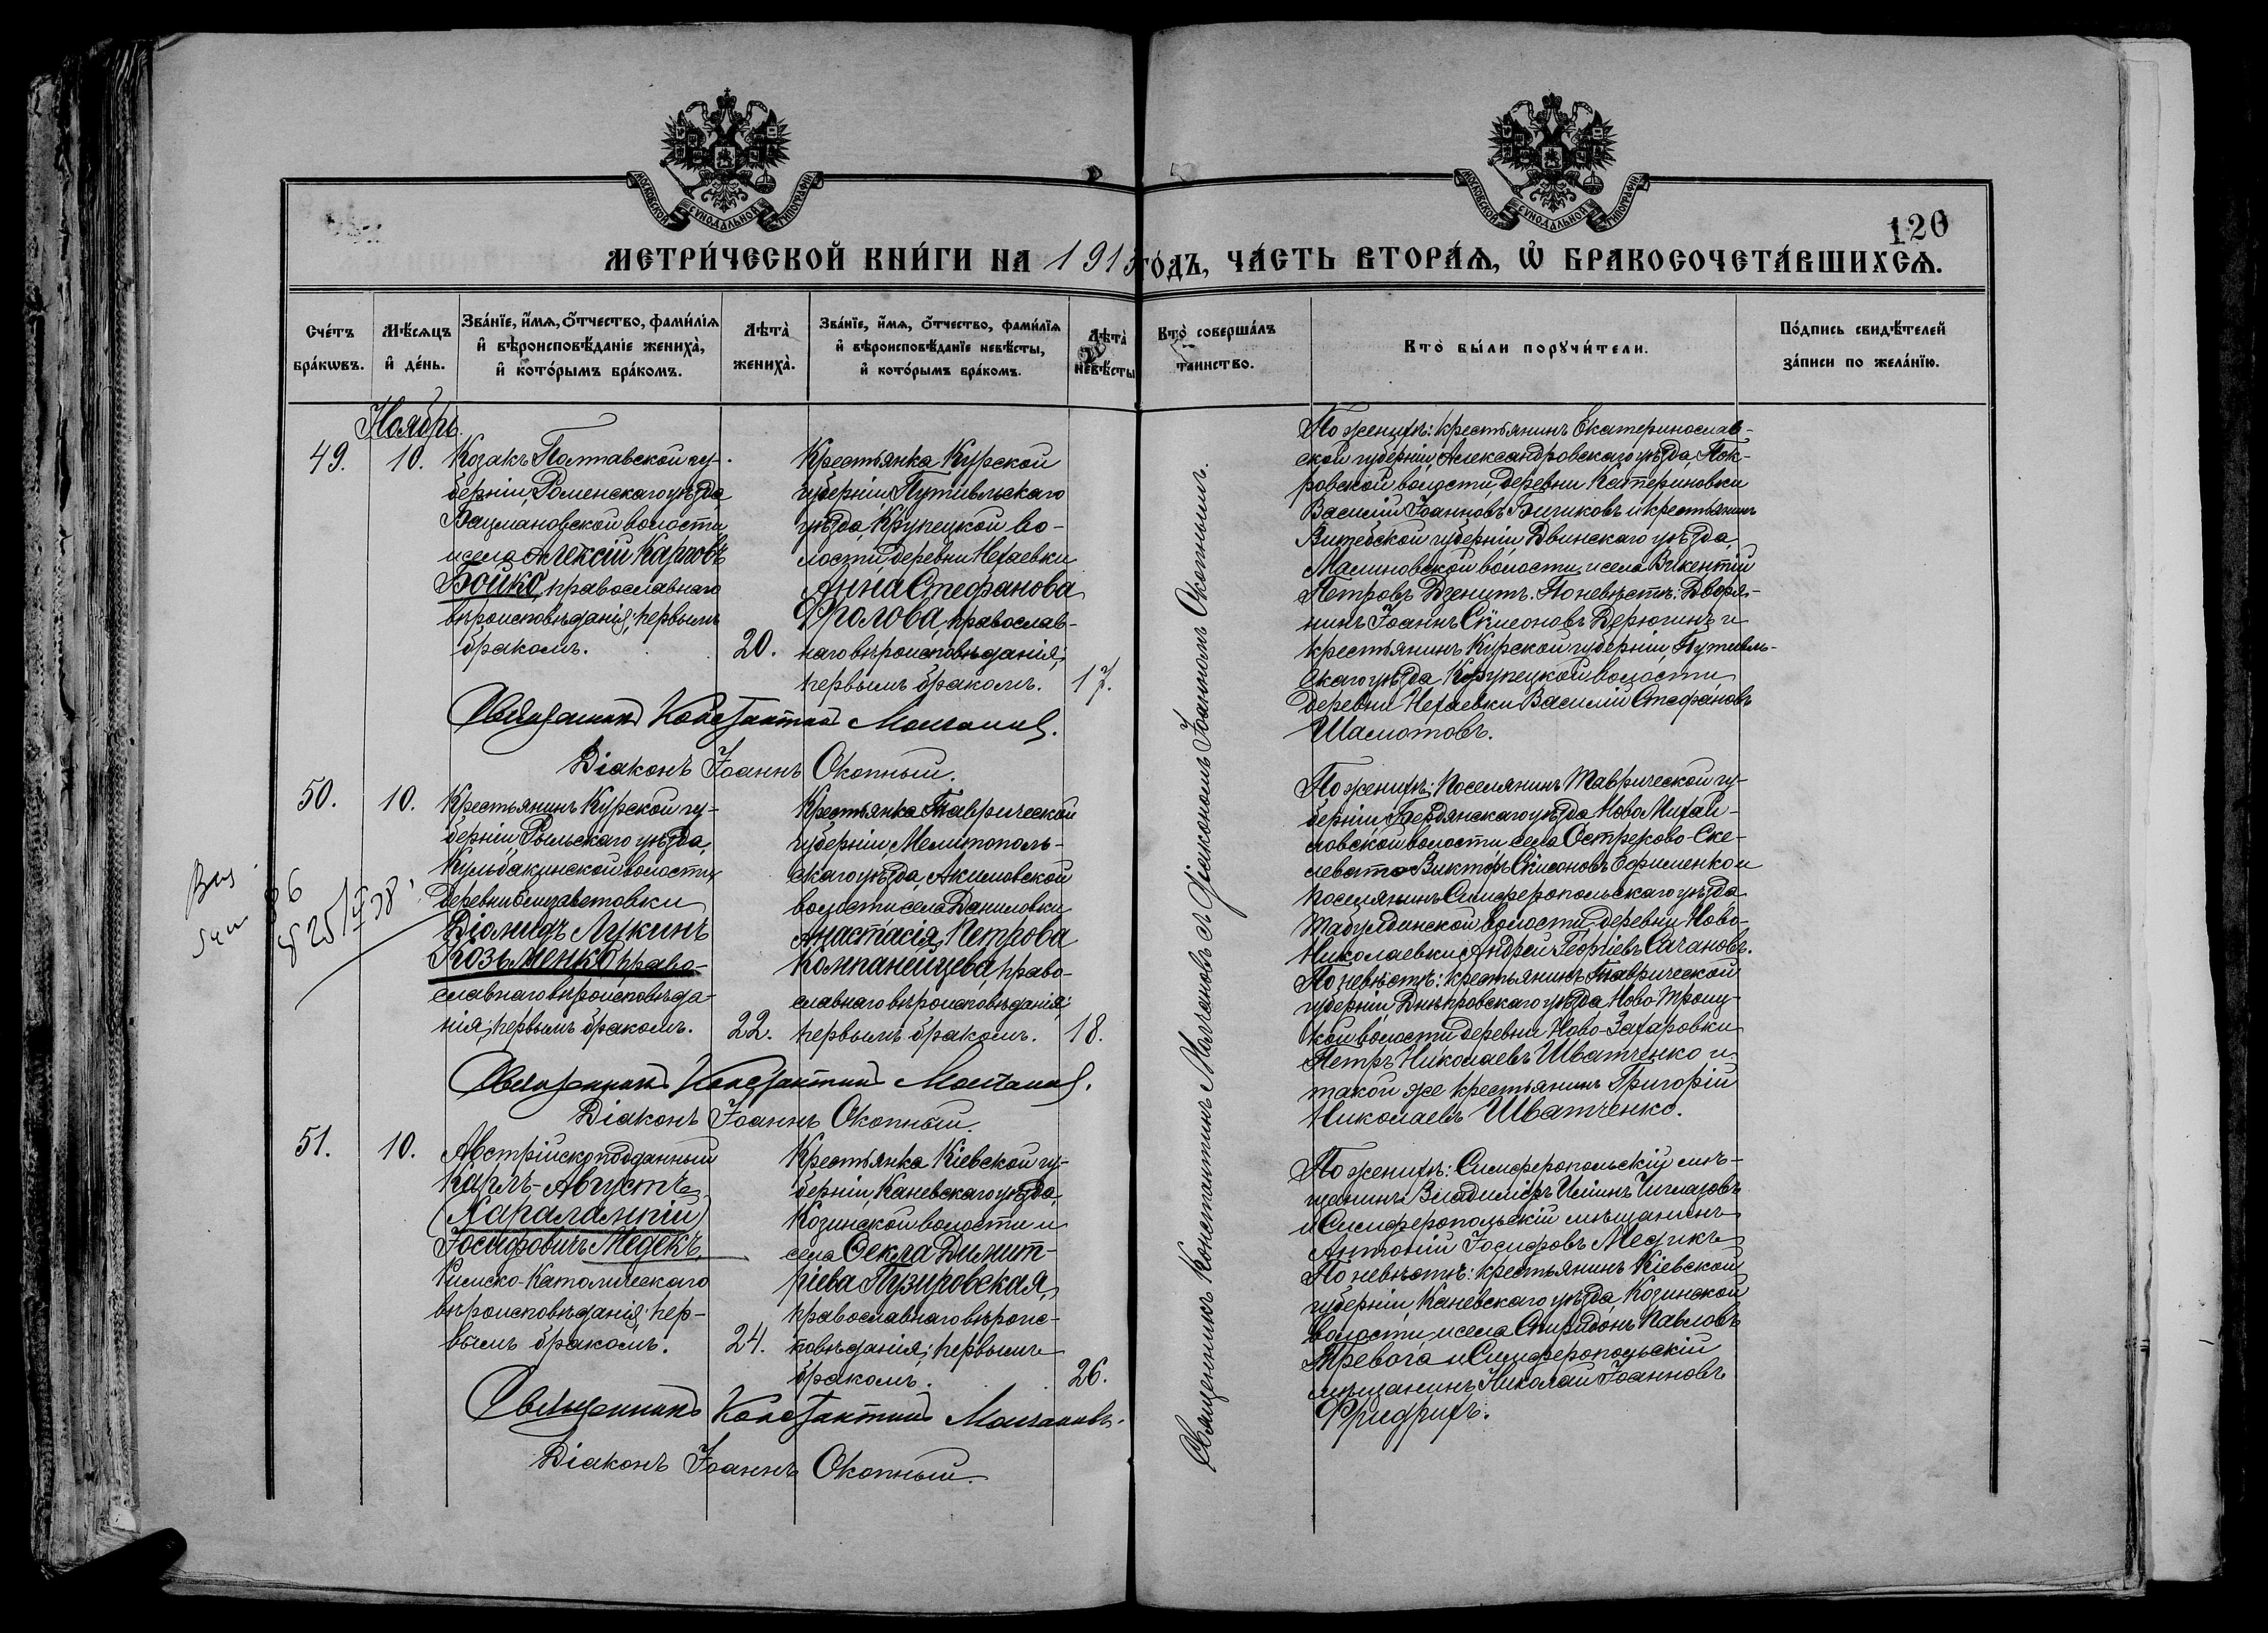 МОСКОВСКОЙ СѴНОДАЛЬНОЙ ТИПОГРАФІИ
МОСКОВСКОЙ СѴНОДАЛЬНОЙ ТИПОГРАФІИ
120
МЕТРИ́ЧЕСКОЙ КНИ́ГИ НА 1913 ГО́ДЪ, ЧА́СТЬ ВТОРА́Ѧ, Ѡ҆ БРАКОСОЧЕТА́ВШИХСѦ.
Сче́тъ бра́кѡвъ.
Мѣ́сѧцъ и҆ де́нь.
Зва́нїе, и҆́мѧ, ѻ҆́тчество, фами́лїѧ
и҆ вѣроисповѣ́данїе жениха̀,
и҆ кото́рымъ бра́комъ.
Лѣта̀ жениха̀.
Зва́нїе, и҆́мѧ, ѻ҆́тчество, фами́лїѧ
и҆ вѣроисповѣ́данїе невѣ́сты,
и҆ кото́рымъ бра́комъ.
Лѣта̀ невѣ́сты
Кто̀ соверша́лъ таинство.
Кто̀ бы́ли порꙋчи́тели.
По́дпись свидѣ́телей
за́писи по жела́нїю.
Ноябрь
49.
10.
Козакъ Полтавской гу-
берніи, Роменскаго уѣзда,
Бацмановской волости
и села Алексій Карповъ
Бойко, православнаго
вѣроисповѣданія; первымъ
бракомъ.
20.
Крестьянка Курской
губерніи, Путивльскаго
уѣзда, Крупецкой во-
лости, деревни Нехаевки
Анна Стефанова
Фролова, православ-
наго вѣроисповѣданія;
первымъ бракомъ.
17.
По женихѣ: крестьянинъ Екатеринослав-
ской губерніи, Александровскаго уѣзда, Пок-
ровской волости, деревни Катериновки
Василій Іоанновъ и крестьянинъ
Витебской губерніи, Двинскаго уѣзда,
Малиновской волости, и села Викентій
Петровъ Дзенитъ. По невѣстѣ: Дворя-
нинъ Іоаннъ Сѵмеоновъ Дерюгинъ и
крестьянинъ Курской губерніи, Путивль-
скаго уѣзда, Крупецкой волости
деревни Нехаевки Василій Стефановъ
Шамотовъ.
Священникъ Константинъ Молчановъ.
Діаконъ Іоаннъ Окопный.
50.
10.
Крестьянинъ Курской гу-
берніи, Рыльскаго уѣзда,
Кульбакинской волости,
деревни Елизаветовки
Діомидъ Лукинъ
Козьменко, право-
славнаго вѣроисповѣда-
нія; первымъ бракомъ.
22.
Крестьянка Таврической
губерніи, Мелитополь-
скаго уѣзда, Акимовской
волости села Даниловки
Анастасія Петрова
Компанейцева, право-
славнаго вѣроисповѣданія;
первымъ бракомъ.
18.
По женихѣ: Поселянинъ Таврической гу-
берніи, Бердянскаго уѣзда, Ново-Михай-
ловской волости села
Викторъ Сѵмеоновъ Ефименко и
поселянинъ Симферопольскаго уѣзда,
Табулдинской волости, деревни Ново-
Николаевки, Андрей Георгіевъ
По невѣстѣ: крестьянинъ Таврической
губерніи, Днѣпровскаго уѣзда, Ново-Троиц-
кой волости деревни Ново-Захаровки
Петръ Николаевъ Шватченко и
такой же крестьянинъ Григорій
Николаевъ Шватченко.
86
Священникъ Константинъ Молчановъ.
Діаконъ Іоаннъ Окопный.
51.
10.
Австрійскоподданный
Карлъ-Августъ
(Харалампій)
Іосифовичъ Медекъ,
Римско-Католическаго
вѣроисповѣданія; пер-
вымъ бракомъ.
24.
Крестьянка Кіевской гу-
берніи, Каневскаго уѣзда,
Козинской волости и
села Ѳекла Димит-
ріева Пузировская,
православнаго вѣроис-
повѣданія; первымъ
бракомъ.
26.
По женихѣ: Симферопольскій мѣ-
щанинъ Владиміръ Ильинъ
и Симферопольскій мѣщанинъ
Антоній Іосифовъ Медикъ
По невѣстѣ: крестьянинъ Кіевской
губерніи, Каневскаго уѣзда, Козинской
волости, и села Спиридонъ Павловъ
Тревога и Симферопольскій
мѣщанинъ Николай Іоанновъ
Фридрихъ.
Священникъ Константинъ Молчановъ.
Діаконъ Іоаннъ Окопный.
Священникъ Константинъ Молчановъ съ діакономъ Іоанномъ Окопнымъ.